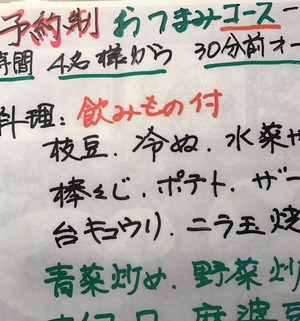 予約制 おつまみコース
時間 4名様から 30分前オー
料理：飲みもの付
枝豆．冷ぬ．水菜サ
棒々じ．ポテト．ザー
台キュウリ．ニラ玉焼
青菜炒め．野菜炒
麻婆豆